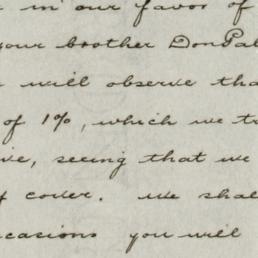 in our favor of
your brother Don Pab
will observe tha
of 1%, which we t
ive, seeing that we
of cover. We shal
ccasions you will